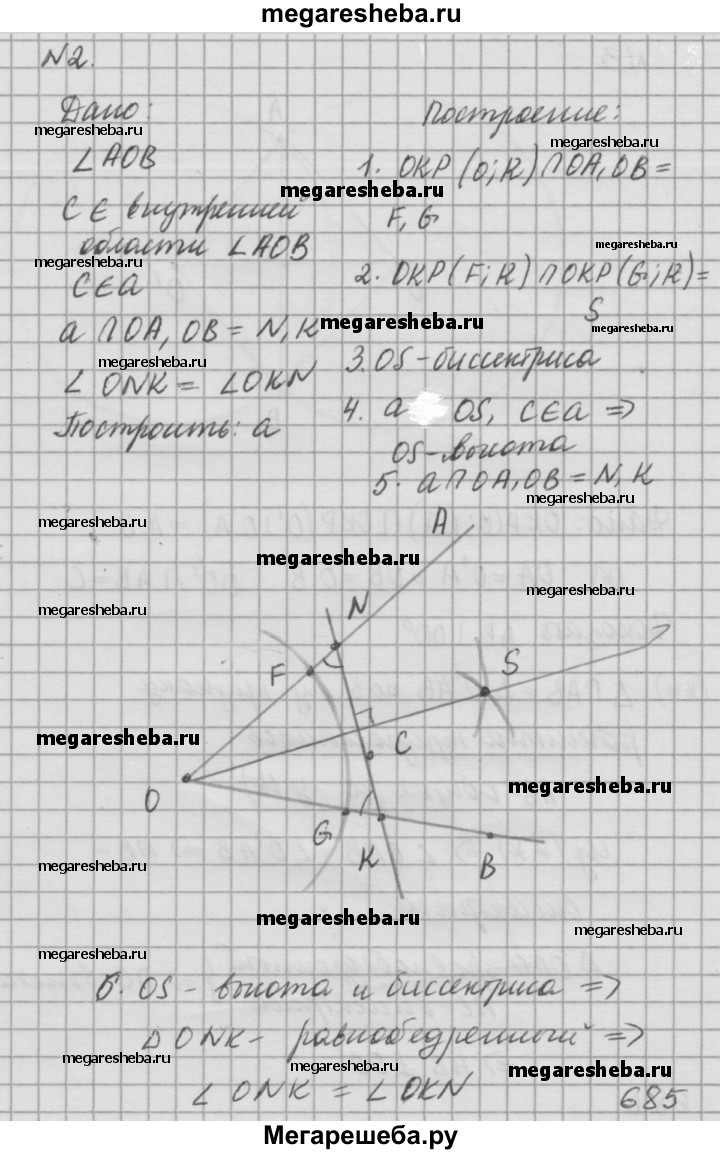 megaresheba.ru
N2.
Дано:
Построение:
megaresheba.ru
megaresheba.ru
∠AOB
1. ОКР (O; R) ∩ OA, OB =
megaresheba.ru
C ∈ внутренней
F, G
области ∠AOB
megaresheba.ru
megaresheba.ru
C ∈ a
2. ОКР (F; R) ∩ ОКР (G; R) =
S
a ∩ OA, OB = N, K
megaresheba.ru
megaresheba.ru
megaresheba.ru
3. OS - биссектриса
∠ ONK = ∠OKN
4. a OS, C ∈ a =>
Построить: a
OS - высота
5. a ∩ OA, OB = N, K
megaresheba.ru
megaresheba.ru
A
megaresheba.ru
megaresheba.ru
megaresheba.ru
N
F
S
megaresheba.ru
C
megaresheba.ru
O
G
K
B
megaresheba.ru
megaresheba.ru
megaresheba.ru
megaresheba.ru
6. OS - высота и биссектриса =>
Δ ONK - равнобедренный =>
megaresheba.ru
megaresheba.ru
megaresheba.ru
∠ ONK = ∠ OKN
685
Мегарешеба.ру